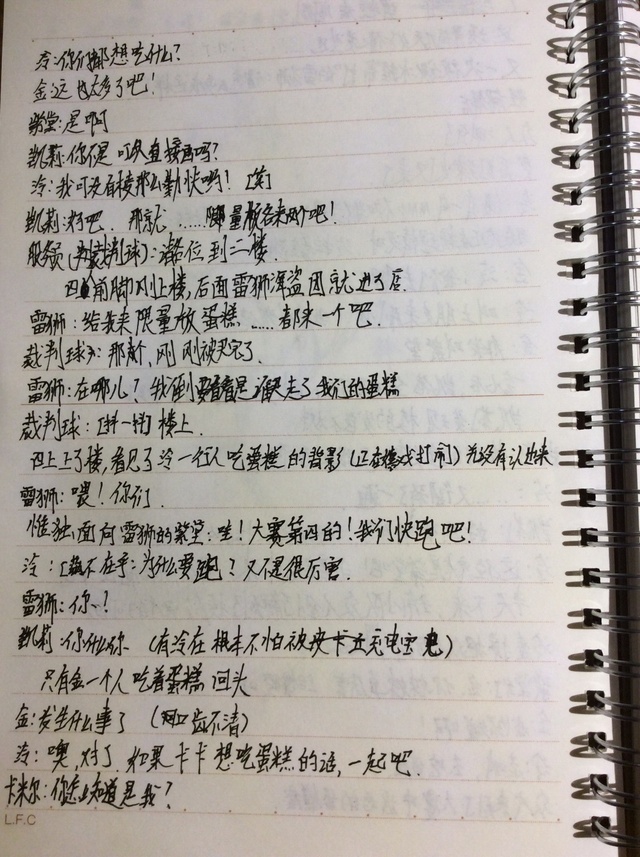 冷:你们都想吃什么?
金:这也太多了吧!
紫堂:是啊
凯莉:你不是可以直接画吗?
冷:我可没有楼那么勤快啊! [笑]
凯莉:好吧. 那就,……限量版各来两个吧!
服务员(为裁判球):诸位到二楼.
四人前脚刚上楼,后面雷狮海盗团就进了店.
雷狮:给我来限量放蛋糕……都来一个吧.
裁判球:那个,刚刚被买完了.
雷狮:在哪儿?我倒要看看是谁买走了我们的蛋糕
裁判球:[指一指]楼上.
四上上了楼,看见了冷一行人吃蛋糕的背影(正在嬉戏打闹)并没有认出来
雷狮:喂!你们.
惟独面向雷狮的紫堂:哇!大赛第四的!我们快跑吧!
冷:[毫不在乎]:为什么要跑?又不是很厉害.
雷狮:你..?
凯莉:你什么你. (有冷在根本不怕被夹卡立充电宝电)
只有金一个人吃着蛋糕回头
金:发生什么事了 (口齿不清)
冷:噢,对了,如果卡卡想吃蛋糕的话,一起吧.
卡米尔:你怎么知道是我?
L.F.C